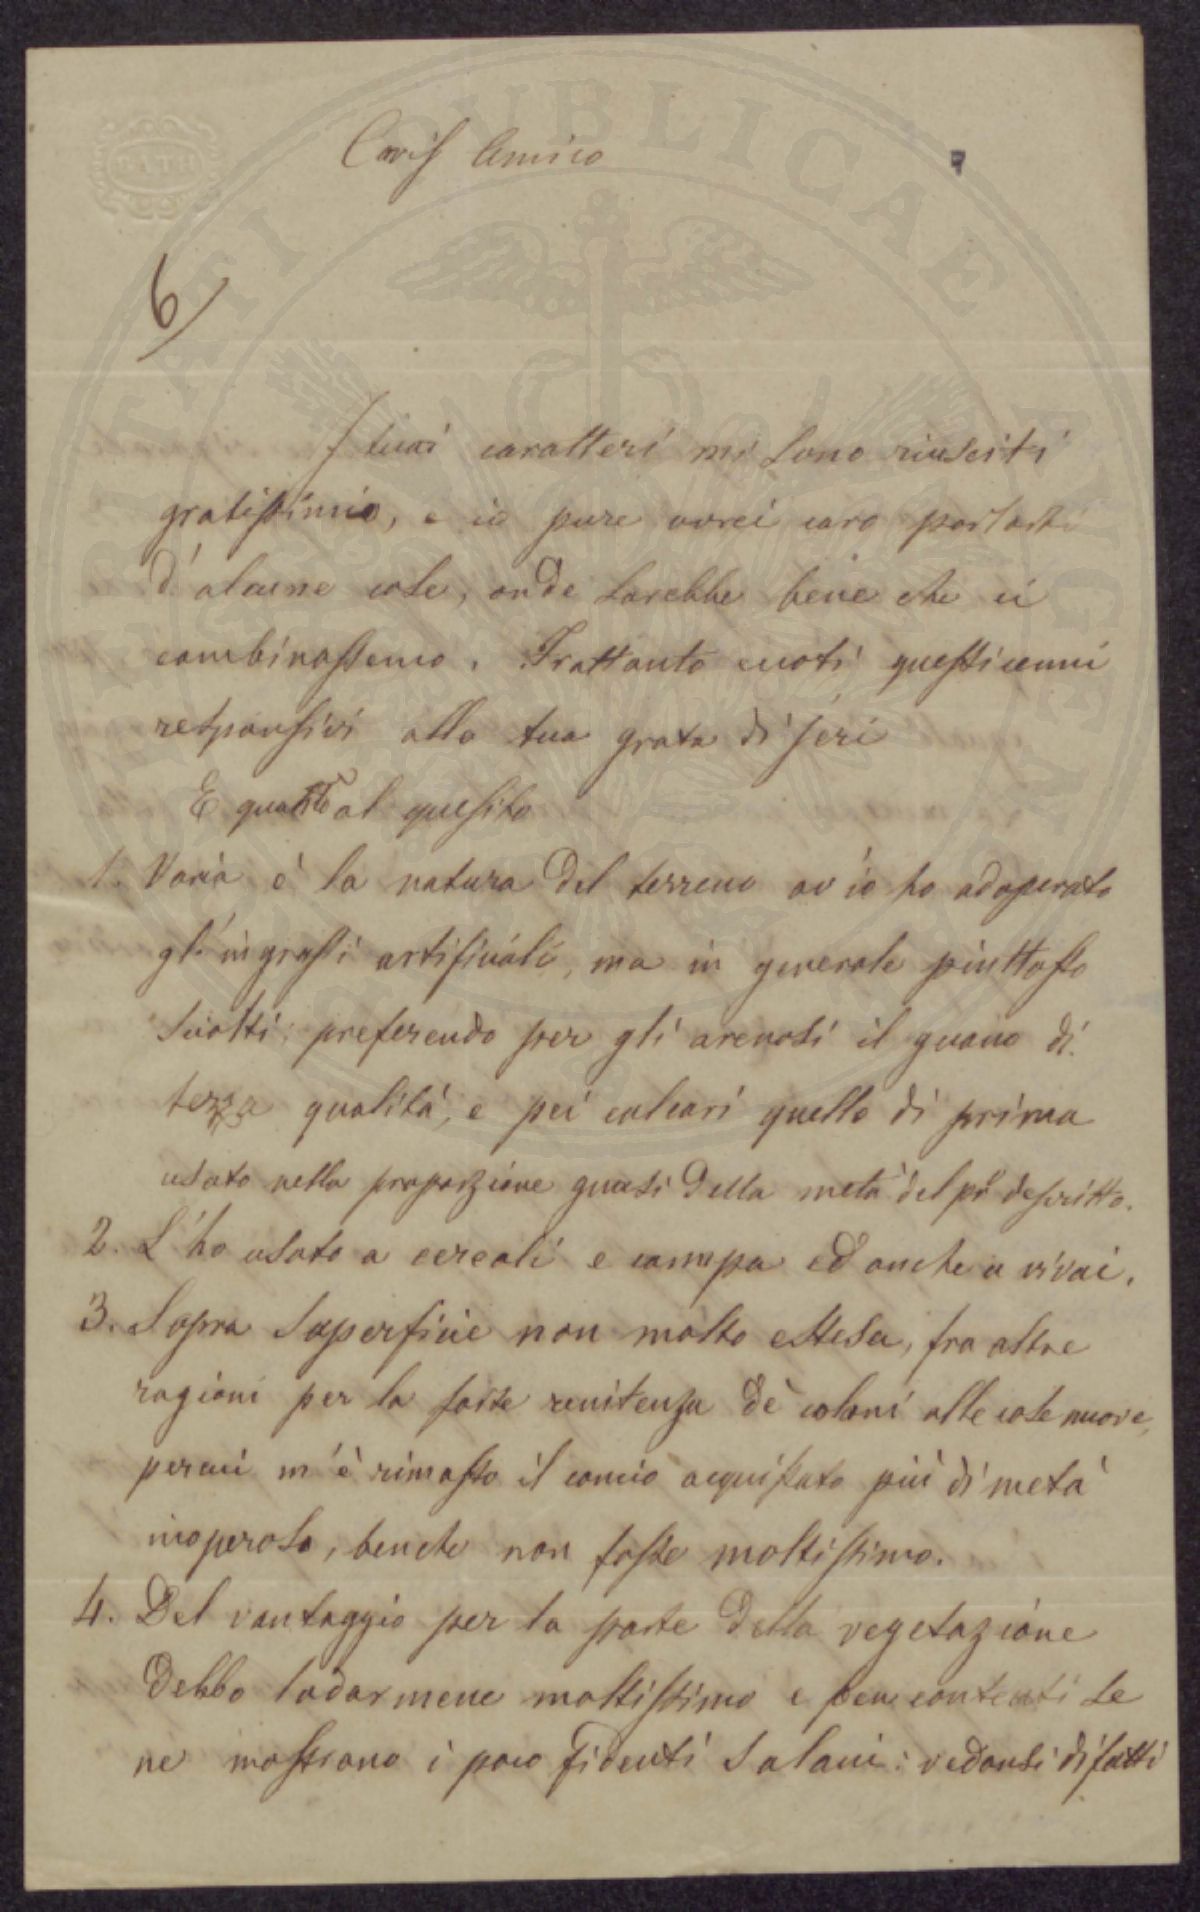 Cariſ Amico
6
I tuoi caratteri mi sono riusciti
gratissimi, e io pure avrei caro parlarti
d'alcune cose, onde sarebbe bene che ci
combinassemo. Frattanto eccoti questi cenni
responsivi alla tua grata di jeri
E quanto al quesito
1. Varia è la natura del terreno ov'io ho adoperato
gl'ingrassi artificiali, ma in generale piuttosto
sciolti; preferendo per gli arenosi il guano di
terza qualità, e pei calcari quello di prima
usato nella proporzione quasi della metà del pr descritto.
2. L'ho usato a cereali e canapa ed anche a vivai.
3. Sopra superficie non molto estesa, fra altre
ragioni per la forte renitenza de' coloni alle cose nuove,
percui m'è rimasto il concio acquistato più di metà
inoperoso, benche non fosse moltissimo.
4. Del vantaggio per la parte della vegetazione
debbo lodarmene moltissimo e ben contenti se
ne mostrano i poco fidenti : vedonsi difatti